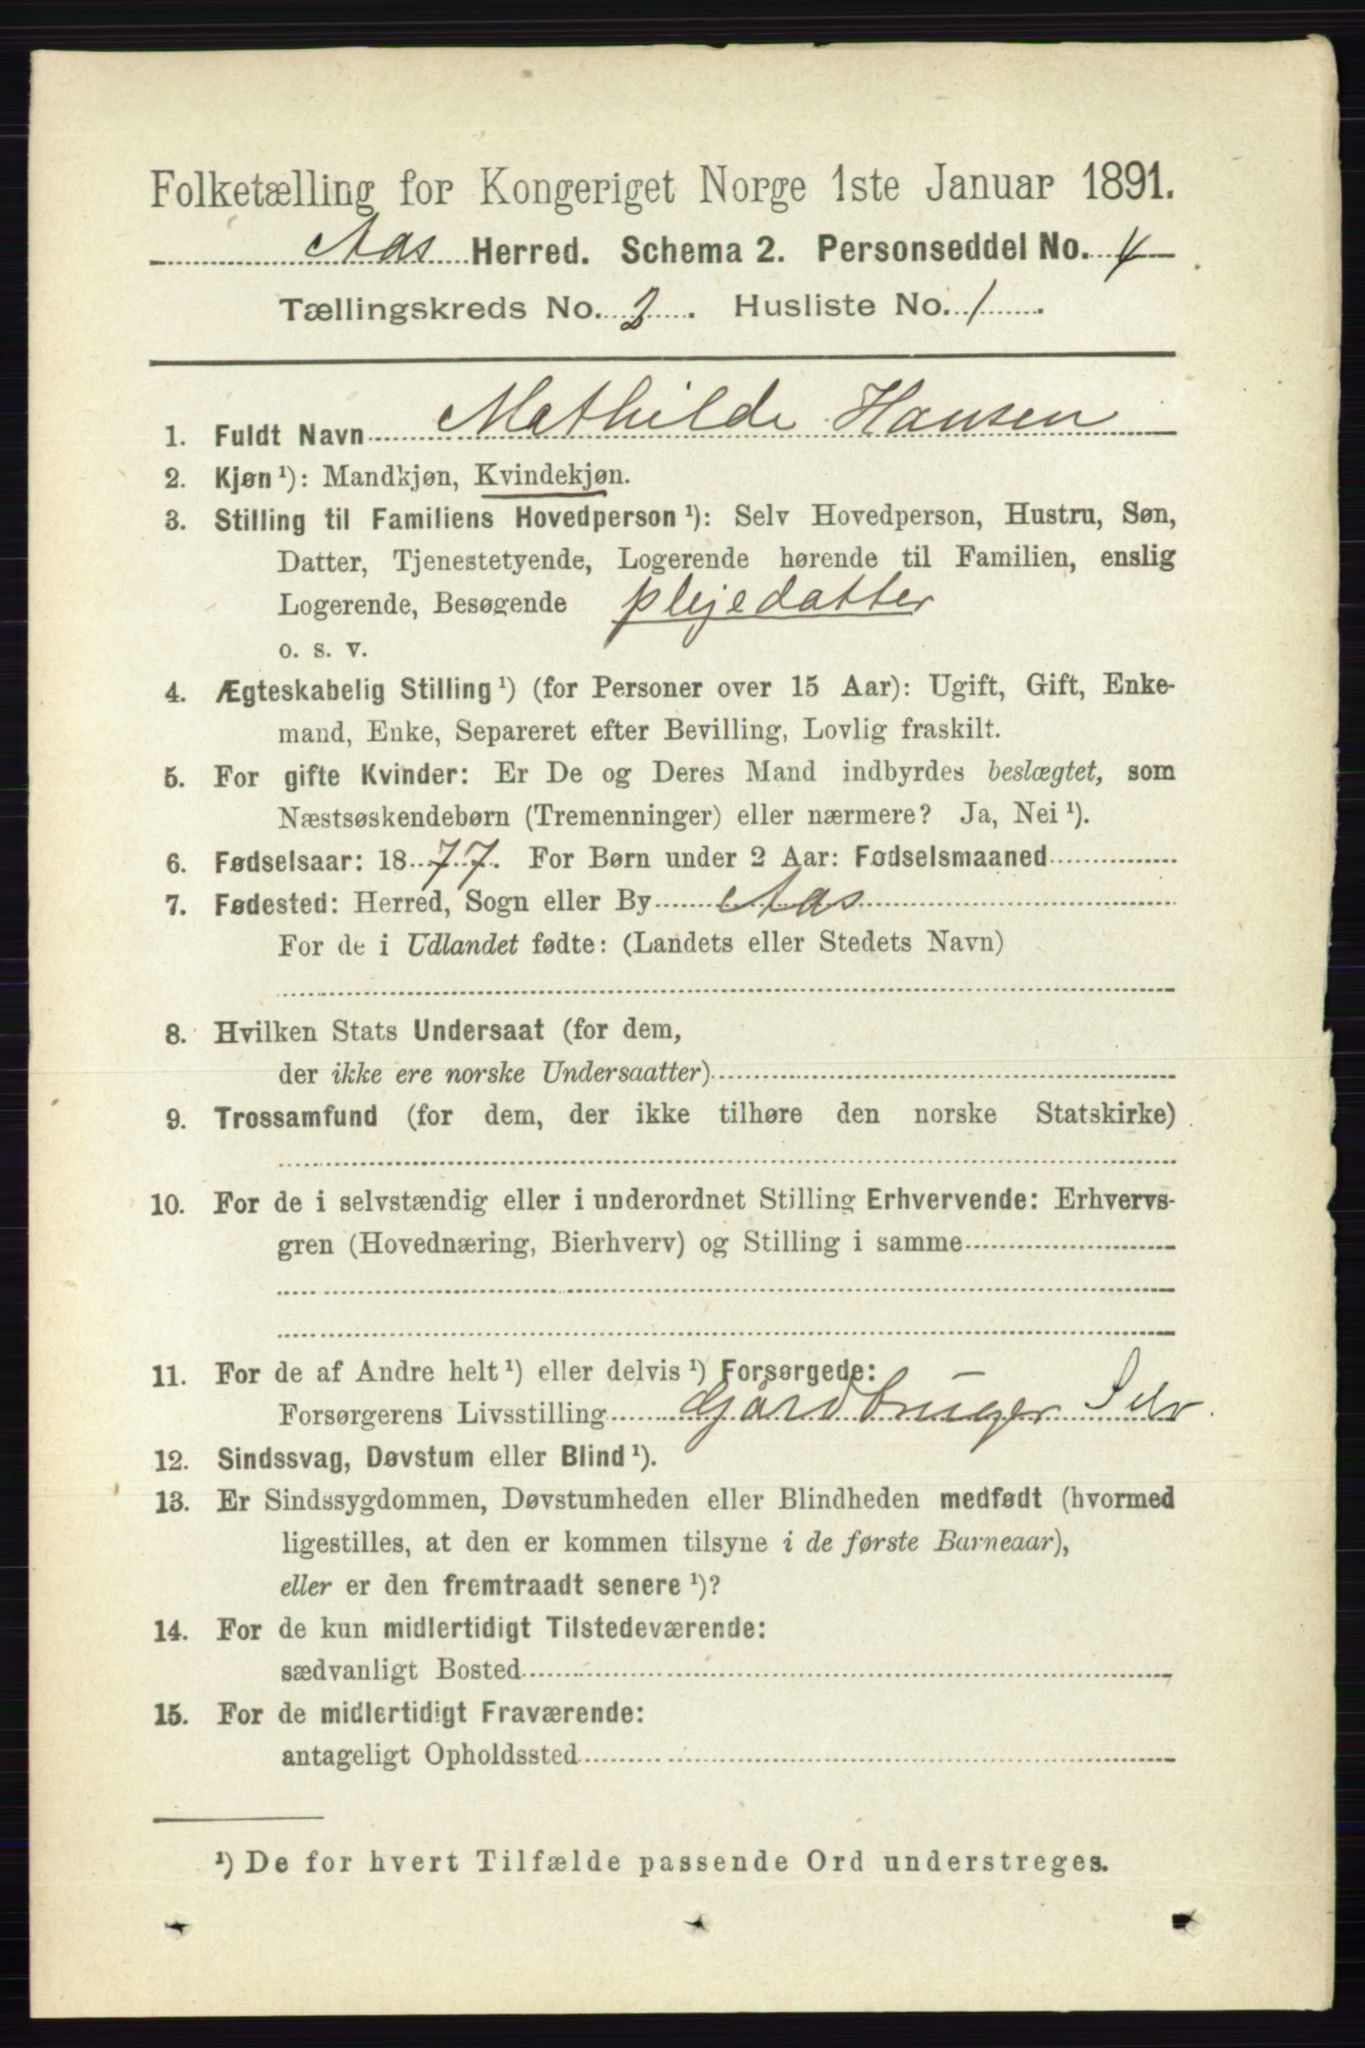 Folketælling for Kongeriget Norge 1ste Januar 1891.
Aas Herred. Schema 2. Personseddel No. 4
Tællingskreds No. 2. Husliste No. 1.
1. Fuldt Navn Mathilde Hansen
2. Kjøn ¹): Mandkjøn, Kvindekjøn.
3. Stilling til Familiens Hovedperson ¹): Selv Hovedperson, Hustru, Søn,
Datter, Tjenestetyende, Logerende hørende til Familien, enslig
Logerende, Besøgende plejedatter
o. s. v.
4. Ægteskabelig Stilling ¹) (for Personer over 15 Aar): Ugift, Gift, Enke-
mand, Enke, Separeret efter Bevilling, Lovlig fraskilt.
5. For gifte Kvinder: Er De og Deres Mand indbyrdes beslægtet, som
Næstsøskendebørn (Tremenninger) eller nærmere? Ja, Nei ¹).
6. Fødselsaar: 1877. For Børn under 2 Aar: Fødselsmaaned
7. Fødested: Herred, Sogn eller By Aas
For de i Udlandet fødte: (Landets eller Stedets Navn)
8. Hvilken Stats Undersaat (for dem,
der ikke ere norske Undersaatter)
9. Trossamfund (for dem, der ikke tilhøre den norske Statskirke)
10. For de i selvstændig eller i underordnet Stilling Erhvervende: Erhvervs-
gren (Hovednæring, Bierhverv) og Stilling i samme
11. For de af Andre helt ¹) eller delvis ¹) Forsørgede:
Forsørgerens Livsstilling Gårdbruger Selv
12. Sindssvag, Døvstum eller Blind ¹).
13. Er Sindssygdommen, Døvstumheden eller Blindheden medfødt (hvormed
ligestilles, at den er kommen tilsyne i de første Barneaar),
eller er den fremtraadt senere ¹)?
14. For de kun midlertidigt Tilstedeværende:
sædvanligt Bosted
15. For de midlertidigt Fraværende:
antageligt Opholdssted
¹) De for hvert Tilfælde passende Ord understreges.